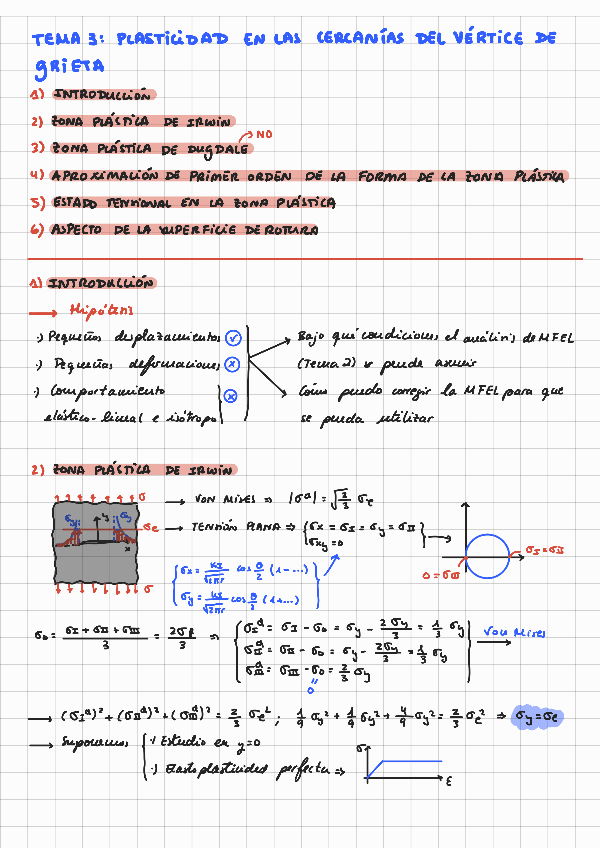 TEMA 3: PLASTICIDAD EN LAS CERCANÍAS DEL VÉRTICE DE
GRIETA
1) INTRODUCCIÓN
2) ZONA PLÁSTICA DE IRWIN
3) ZONA PLÁSTICA DE DUGDALE → NO
4) APROXIMACIÓN DE PRIMER ORDEN DE LA FORMA DE LA ZONA PLÁSTICA
5) ESTADO TENSIONAL EN LA ZONA PLÁSTICA
6) ASPECTO DE LA SUPERFICIE DE ROTURA
1) INTRODUCCIÓN
→ Hipótesis
·) Pequeños desplazamientos ✓
·) Pequeñas deformaciones x
·) Comportamiento
elástico-lineal e isótropo x
Bajo qué condiciones el análisis de MFEL
(Tema 2) se puede asumir
Cómo puedo corregir la MFEL para que
se pueda utilizar
2) ZONA PLÁSTICA DE IRWIN
σ
σy σy σe
y
x
σ
→ VON MISES => |σᵈ| = √(2/3) σe
→ TENSIÓN PLANA => {σx = σI = σy = σII
σxy = 0} →
0 = σIII
σI = σII
{σx = KI/√(2πr) cos θ/2 (1-...)
σy = KI/√(2πr) cos θ/2 (1+...)}
σ0 = (σI + σII + σIII)/3 = 2σy/3 =>
σIᵈ = σI - σ0 = σy - 2σy/3 = 1/3 σy
σIIᵈ = σII - σ0 = σy - 2σy/3 = 1/3 σy
σIIIᵈ = σIII - σ0 = 2/3 σy
"
0
VON MISES →
→ (σIᵈ)² + (σIIᵈ)² + (σIIIᵈ)² = 2/3 σe²; 1/9 σy² + 1/9 σy² + 4/9 σy² = 2/3 σe² => σy = σe
→ Suponemos
·) Estudio en y=0
·) Elastoplasticidad perfecta =>
σ
ε